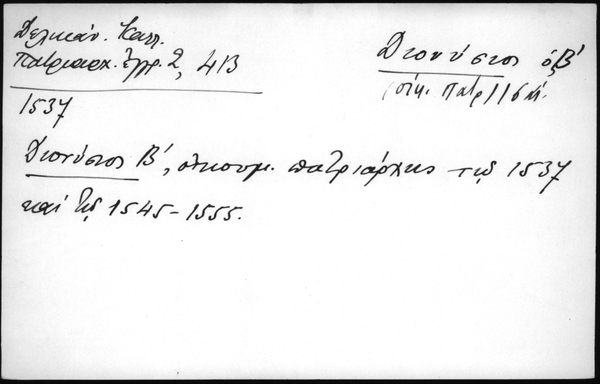 Δελικάν. Καλλ.
Πατριαρχ. Ἔγγρ. 2, 413
1537
Διονύσιος ὁ Β΄
(οἰκ. Πατρ)
Διονύσιος Β΄, οἰκουμ. πατριάρχης τῷ 1537
καὶ τῷ 1545-1555.